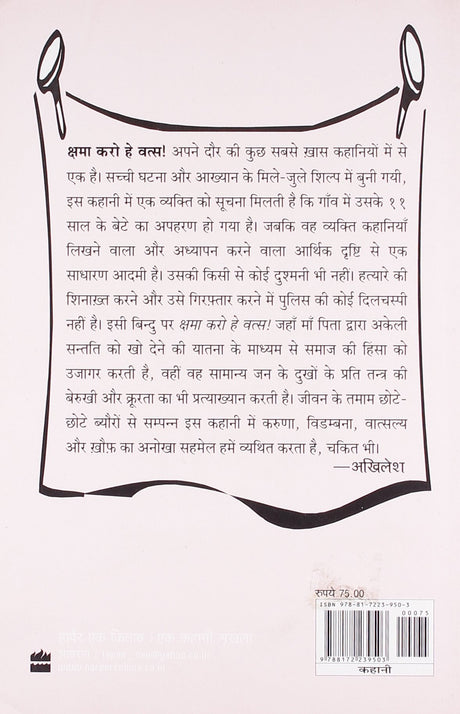 क्षमा करो हे वत्स! अपने दौर की कुछ सबसे ख़ास कहानियों में से
एक है। सच्ची घटना और आख्यान के मिले-जुले शिल्प में बुनी गयी,
इस कहानी में एक व्यक्ति को सूचना मिलती है कि गाँव में उसके ११
साल के बेटे का अपहरण हो गया है। जबकि वह व्यक्ति कहानियाँ
लिखने वाला और अध्यापन करने वाला आर्थिक दृष्टि से एक
साधारण आदमी है। उसकी किसी से कोई दुश्मनी भी नहीं। हत्यारे की
शिनाख़्त करने और उसे गिरफ़्तार करने में पुलिस की कोई दिलचस्पी
नहीं है। इसी बिन्दु पर क्षमा करो हे वत्स! जहाँ माँ पिता द्वारा अकेली
सन्तति को खो देने की यातना के माध्यम से समाज की हिंसा को
उजागर करती है, वहीं वह सामान्य जन के दुखों के प्रति तन्त्र की
बेरुखी और क्रूरता का भी प्रत्याख्यान करती है। जीवन के तमाम छोटे-
छोटे ब्यौरों से सम्पन्न इस कहानी में करुणा, विडम्बना, वात्सल्य
और ख़ौफ़ का अनोखा सहमेल हमें व्यथित करता है, चकित भी।
—अखिलेश
रुपये 75.00
ISBN 978-81-7223-950-3
00075
9788172239503
कहानी